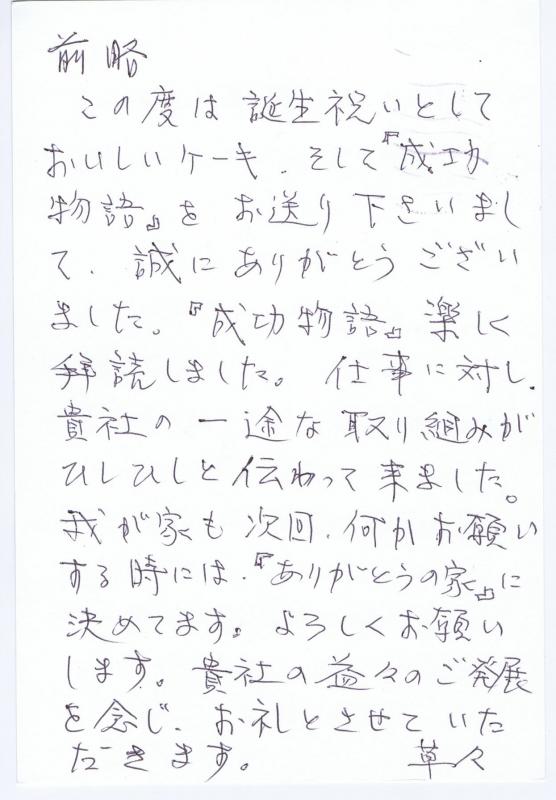 前略
この度は誕生祝いとして
おいしいケーキ、そして『成功
物語』をお送り下さいまし
て、誠にありがとうござい
ました。『成功物語』楽しく
拝読しました。仕事に対し、
貴社の一途な取り組みが
ひしひしと伝わって来ました。
我が家も次回、何かお願い
する時には、『ありがとうの家』に
決めてます。よろしくお願い
します。貴社の益々のご発展
を念じ、お礼とさせていた
だきます。 草々